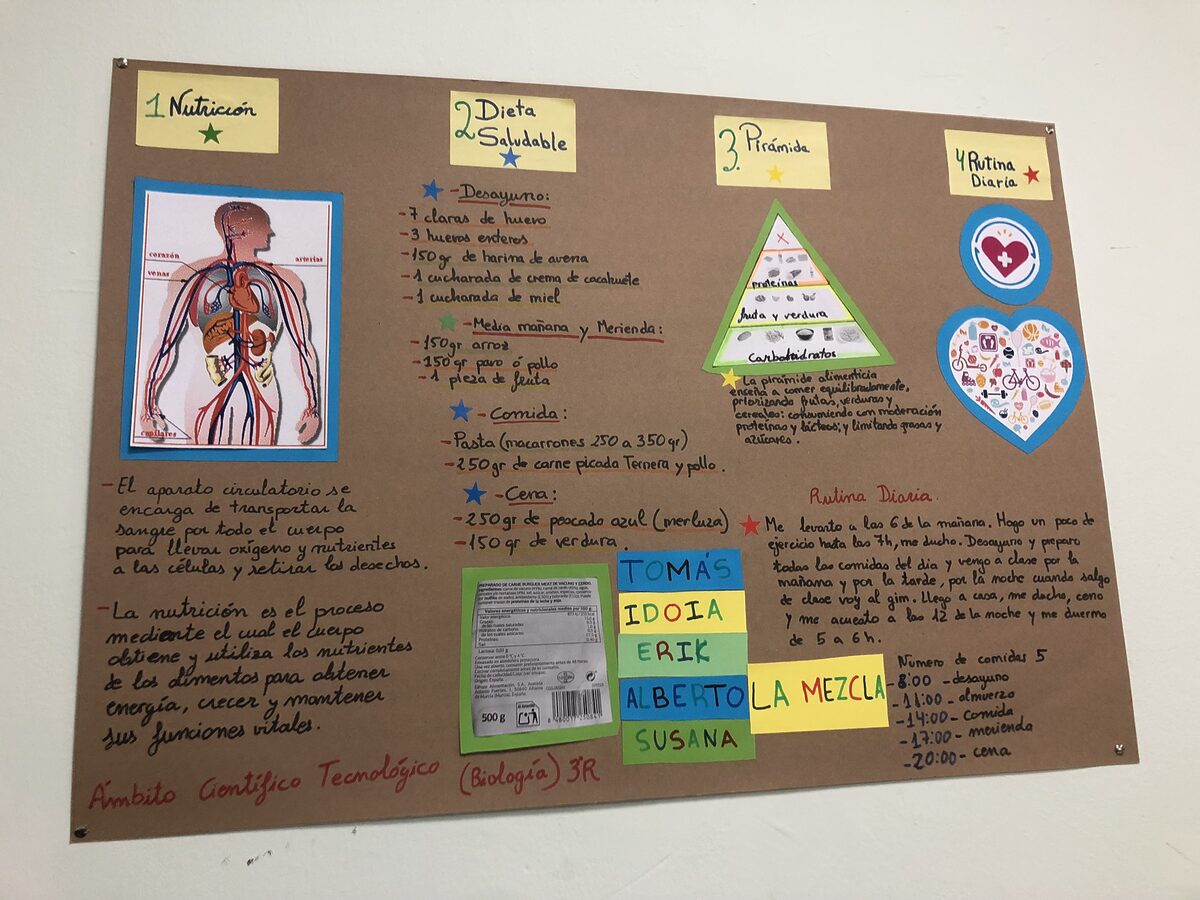 1 Nutrición
corazón
venas
arterias
capilares
- El aparato circulatorio se
encarga de transportar la
sangre por todo el cuerpo
para llevar oxígeno y nutrientes
a las células y retirar los desechos.
- La nutrición es el proceso
mediante el cual el cuerpo
obtiene y utiliza los nutrientes
de los alimentos para obtener
energía, crecer y mantener
sus funciones vitales.
2 Dieta
Saludable
- Desayuno:
- 7 claras de huevo
- 3 huevos enteros
- 150 gr de harina de avena
- 1 cucharada de crema de cacahuete
- 1 cucharada de miel
- Media mañana y Merienda:
- 150gr arroz
- 150 gr pavo ó pollo
- 1 pieza de fruta
- Comida:
- Pasta (macarrones 250 a 350 gr)
- 250 gr de carne picada Ternera y pollo.
- Cena:
- 250 gr de pescado azul (merluza)
- 150 gr de verdura.
PREPARADO DE CARNE BURGER MEAT DE VACUNO Y CERDO.
Valores energéticos y nutricionales medios por 100 g
500 g
TOMÁS
IDOIA
ERIK
ALBERTO
SUSANA
LA MEZCLA
3. Pirámide
X
proteinas
fruta y verdura
Carbohidratos
La pirámide alimenticia
enseña a comer equilibradamente,
priorizando frutas, verduras y
cereales: consumiendo con moderación
proteínas y lácteos; y limitando grasas y
azúcares.
4 Rutina
Diaria
Rutina Diaria.
Me levanto a las 6 de la mañana. Hago un poco de
ejercicio hasta las 7h, me ducho. Desayuno y preparo
todas las comidas del día y vengo a clase por la
mañana y por la tarde, por la noche cuando salgo
de clase voy al gim. llego a casa, me ducho, ceno
y me acuesto a las 12 de la noche y me duermo
de 5 a 6 h.
Número de comidas 5
- 8:00 - desayuno
- 11:00 - almuerzo
- 14:00 - comida
- 17:00 - merienda
- 20:00 - cena
Ámbito Científico Tecnológico (Biología) 3ºR